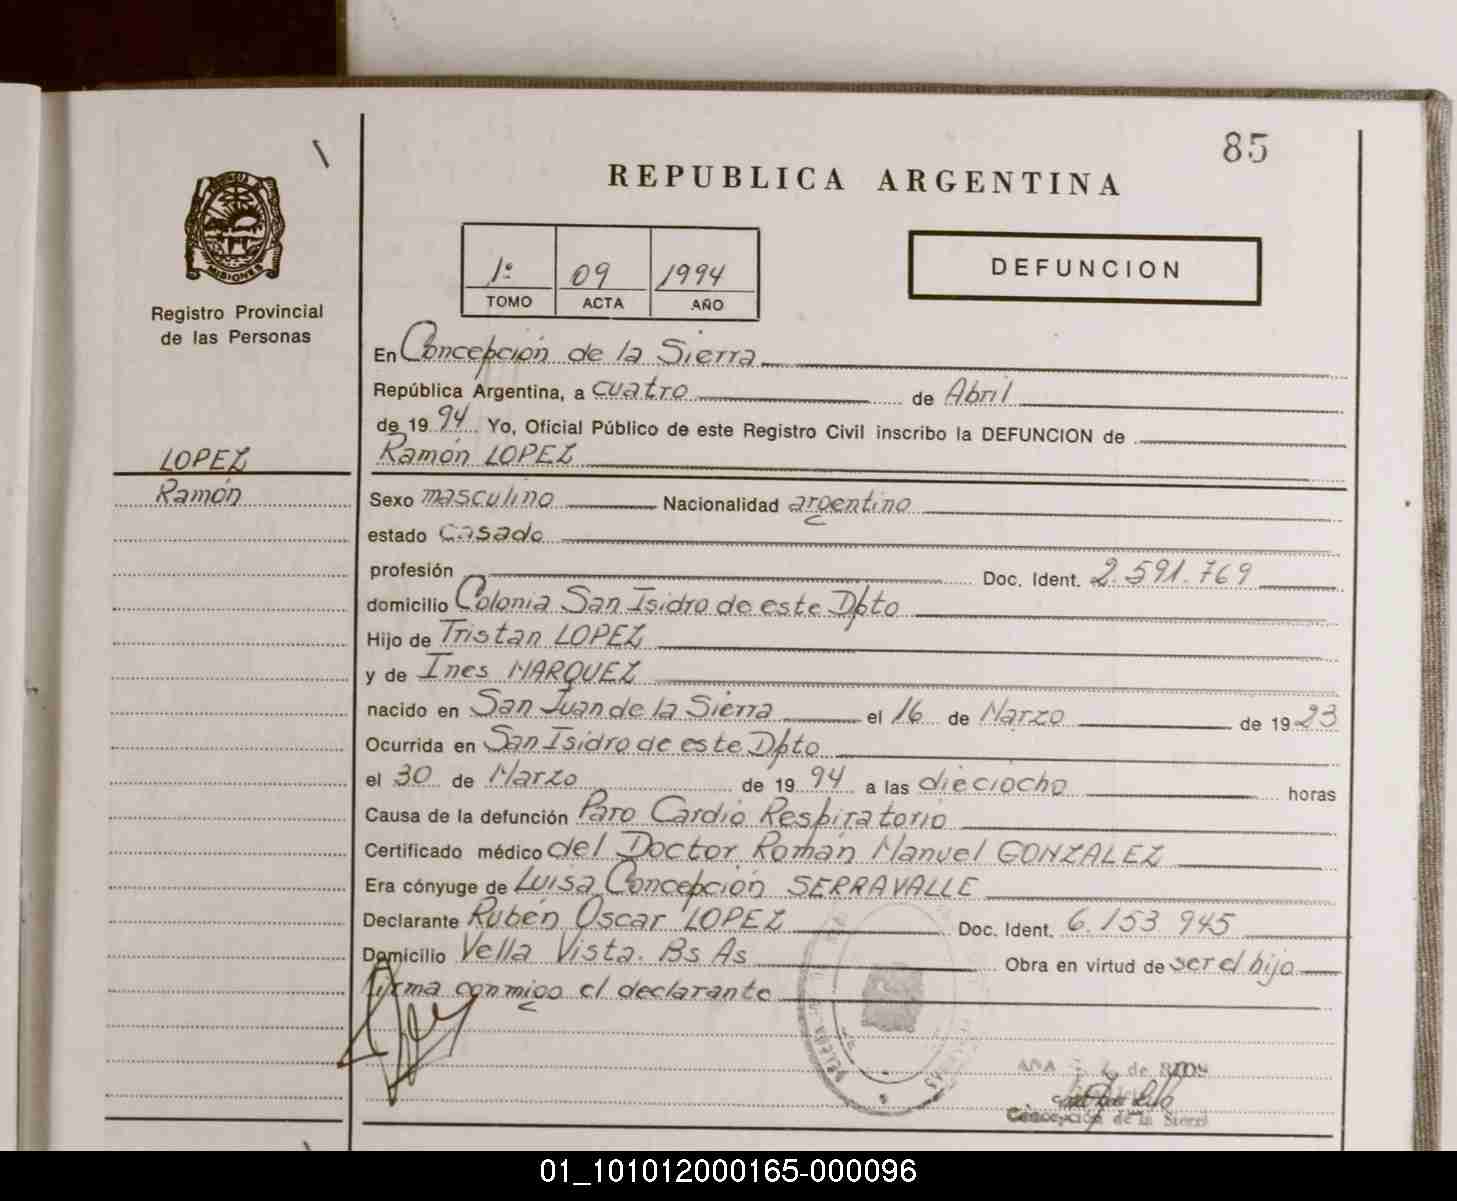 85
REPUBLICA ARGENTINA
MISIONES
Registro Provincial
de las Personas
1º 09 1994
TOMO ACTA AÑO
DEFUNCION
En Concepción de la Sierra
República Argentina, a cuatro de Abril
de 19 94 Yo, Oficial Público de este Registro Civil inscribo la DEFUNCION de
LOPEZ
Ramón
Ramón LOPEZ
Sexo masculino Nacionalidad argentino
estado casado
profesión Doc. Ident. 2.591.769
domicilio Colonia San Isidro de este Dpto
Hijo de Tristan LOPEZ
y de Ines MARQUEZ
nacido en San Juan de la Sierra el 16 de Marzo de 19 23
Ocurrida en San Isidro de este Dpto
el 30 de Marzo de 19 94 a las dieciocho horas
Causa de la defunción Paro Cardio Respiratorio
Certificado médico del Doctor Román Manuel GONZALEZ
Era cónyuge de Luisa Concepción SERRAVALLE
Declarante Rubén Oscar LOPEZ Doc. Ident. 6.153 945
Domicilio Vella Vista. Bs As Obra en virtud de ser el hijo
firma conmigo el declarante
ANA de RIOS
Concepción de la Sierra
01_101012000165-000096